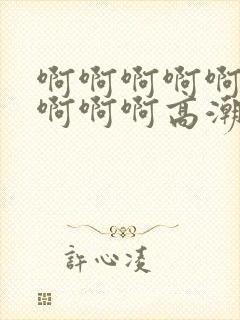 啊啊啊啊啊
啊啊啊高潮
許心凌